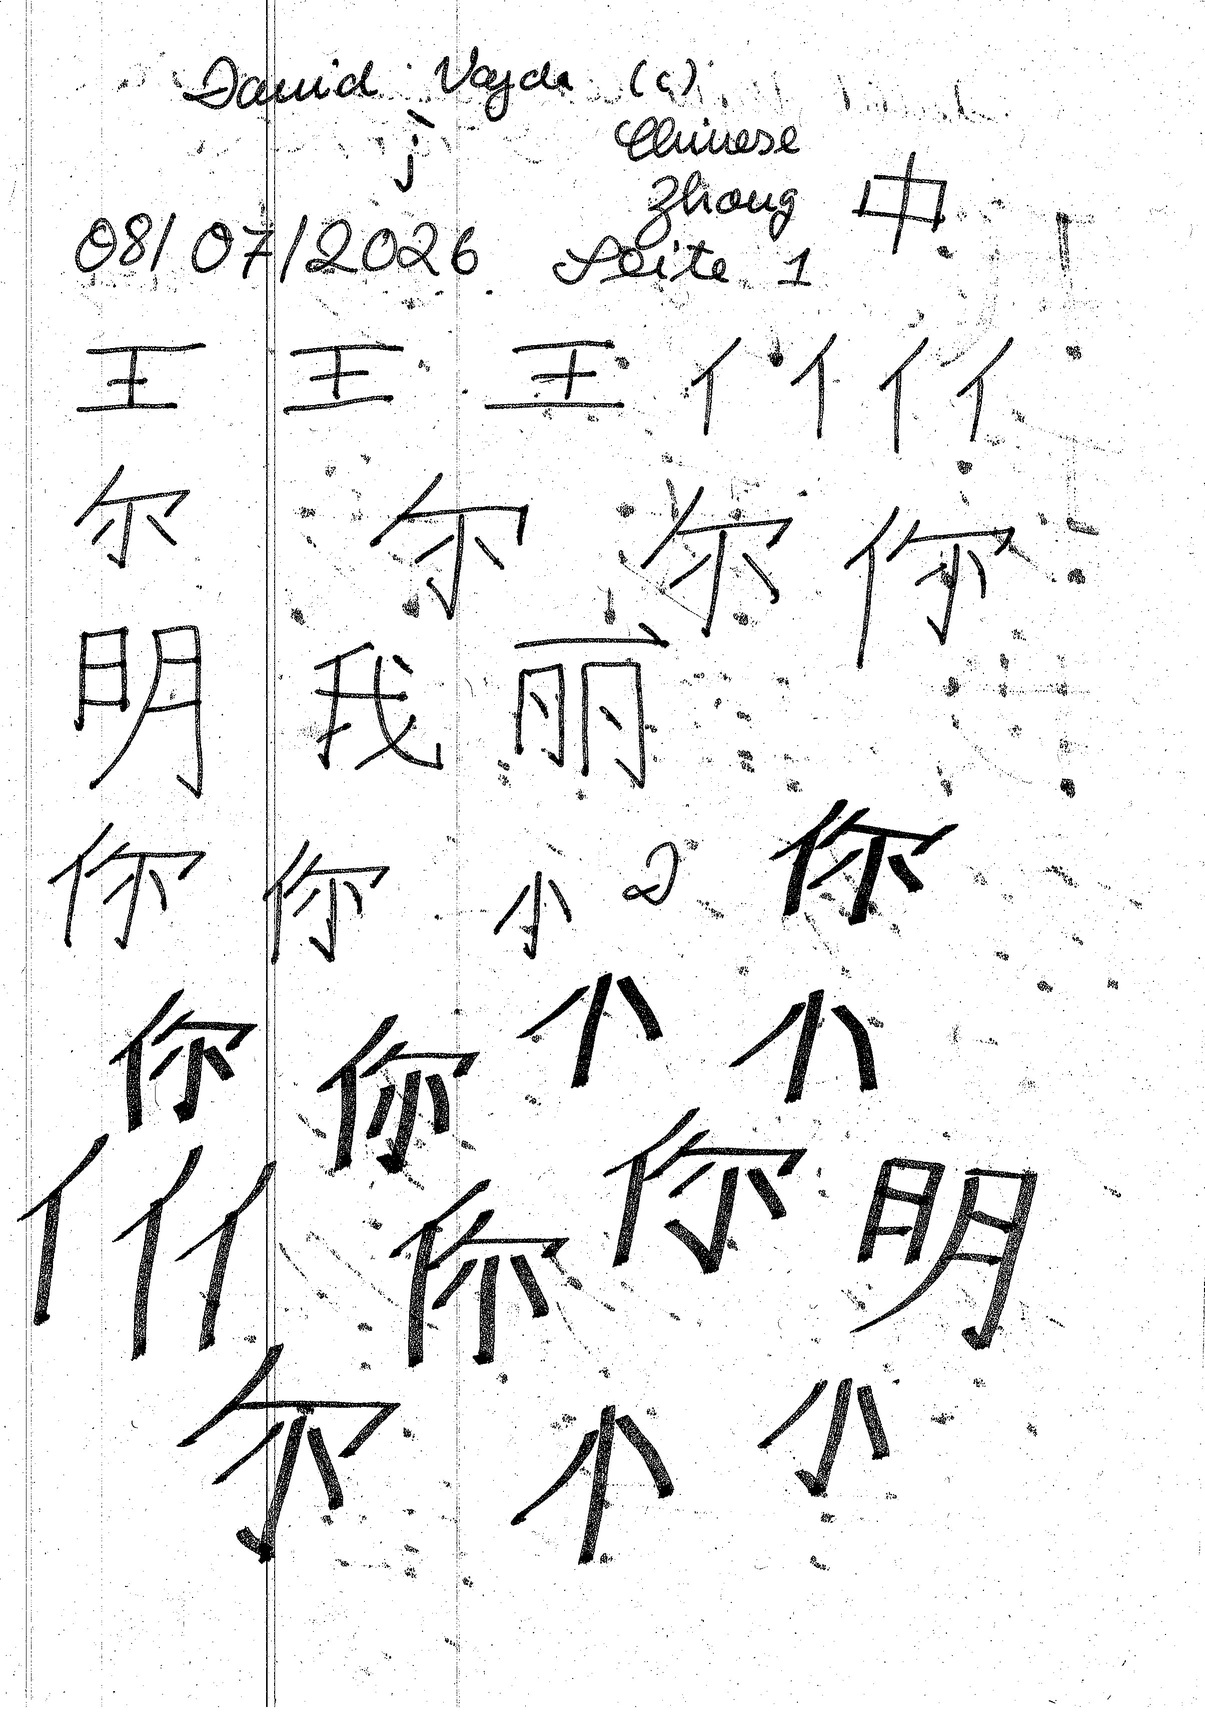 David Vajda (c)
Chinese
Zhong 中
08/07/2026 Seite 1
王 王 王 亻 亻 亻 亻
尔 尔 尔 你
明 我 丽
你 你 小 你
你 你 小 小
亻 亻 亻 你 你 明
尔 小 小